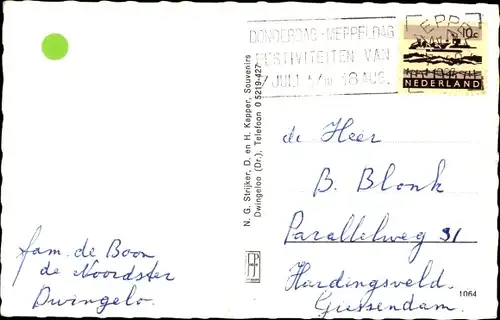 DONDERDAG - MEPPELDAG
FESTIVITEITEN VAN
7 JULI t/m 18 AUG.
MEPPEL
10c
NEDERLAND
N. G. Strijker, D. en H. Kapper, Souvenirs
Dwingeloo (Dr.), Telefoon 0 5219-427
de Heer
B. Blonk
Parallelweg 31
Hardingsveld.
Giessendam.
fam. de Boon
de Noordster
Dwingelo.
1064